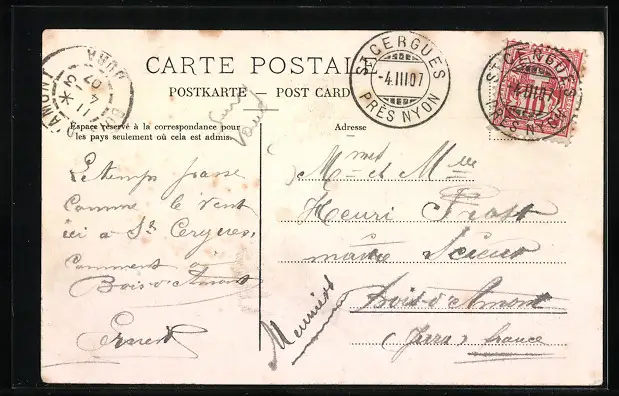 CARTE POSTALE
POSTKARTE — POST CARD
Espace réservé à la correspondance pour
les pays seulement où cela est admis.
Adresse
ST CERGUES
-4.III.07
PRÈS NYON
ST CERGUES
-4.III.07
PRÈS NYON
JURA
Le temps passe
comme le vent
ici à St Cergues.
Comment à
Bois-d'Amont
Ernest
Mr et Mlle
Henri
Bois-d'Amont
(Jura) France